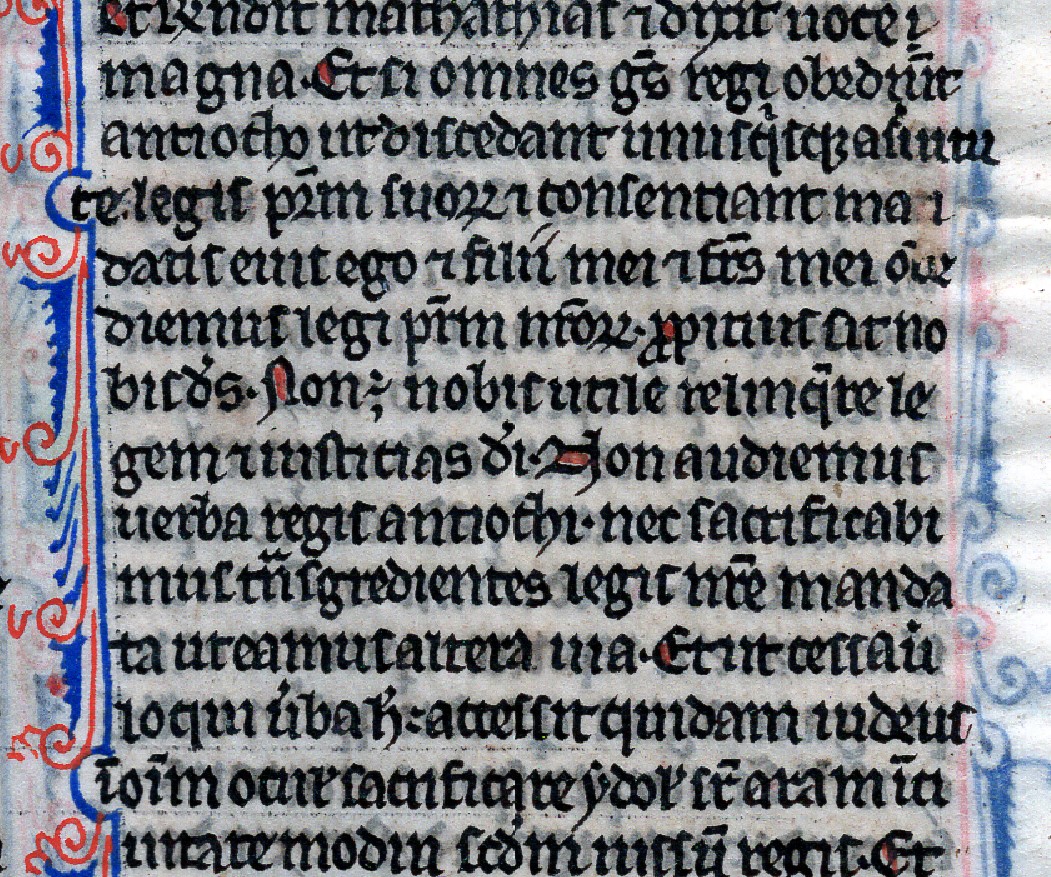 Et rendit mathathias ⁊ dixit uoce i
magna. Et si omnes gn̄s regi obediūt
antiocho ut discedant unusq̇sq; a ẜuitu
te legis pr̄m suoꝝ ⁊ consentiant ma i
datis eius ego ⁊ filii mei ⁊ frs̄ mei obe
diemus legi pr̄m nr̄oꝝ. ꝓpitius sit no
bis ds̄. Non ÷ nobis utile relinq̄re le
gem ⁊ iusticias dī. Non audiemus
uerba regis antiochi. nec sacrificabi
mus tn̄sgredientes legis nr̄e manda
ta ut eamus altera uia. Et ut cessauͥ
loqui ūba h̄: accessit quidam iudeus
ī oīm oculis sacrificare ydolis sr̄ aram ī ci
uitate modin scd̄m iussū regis. Et